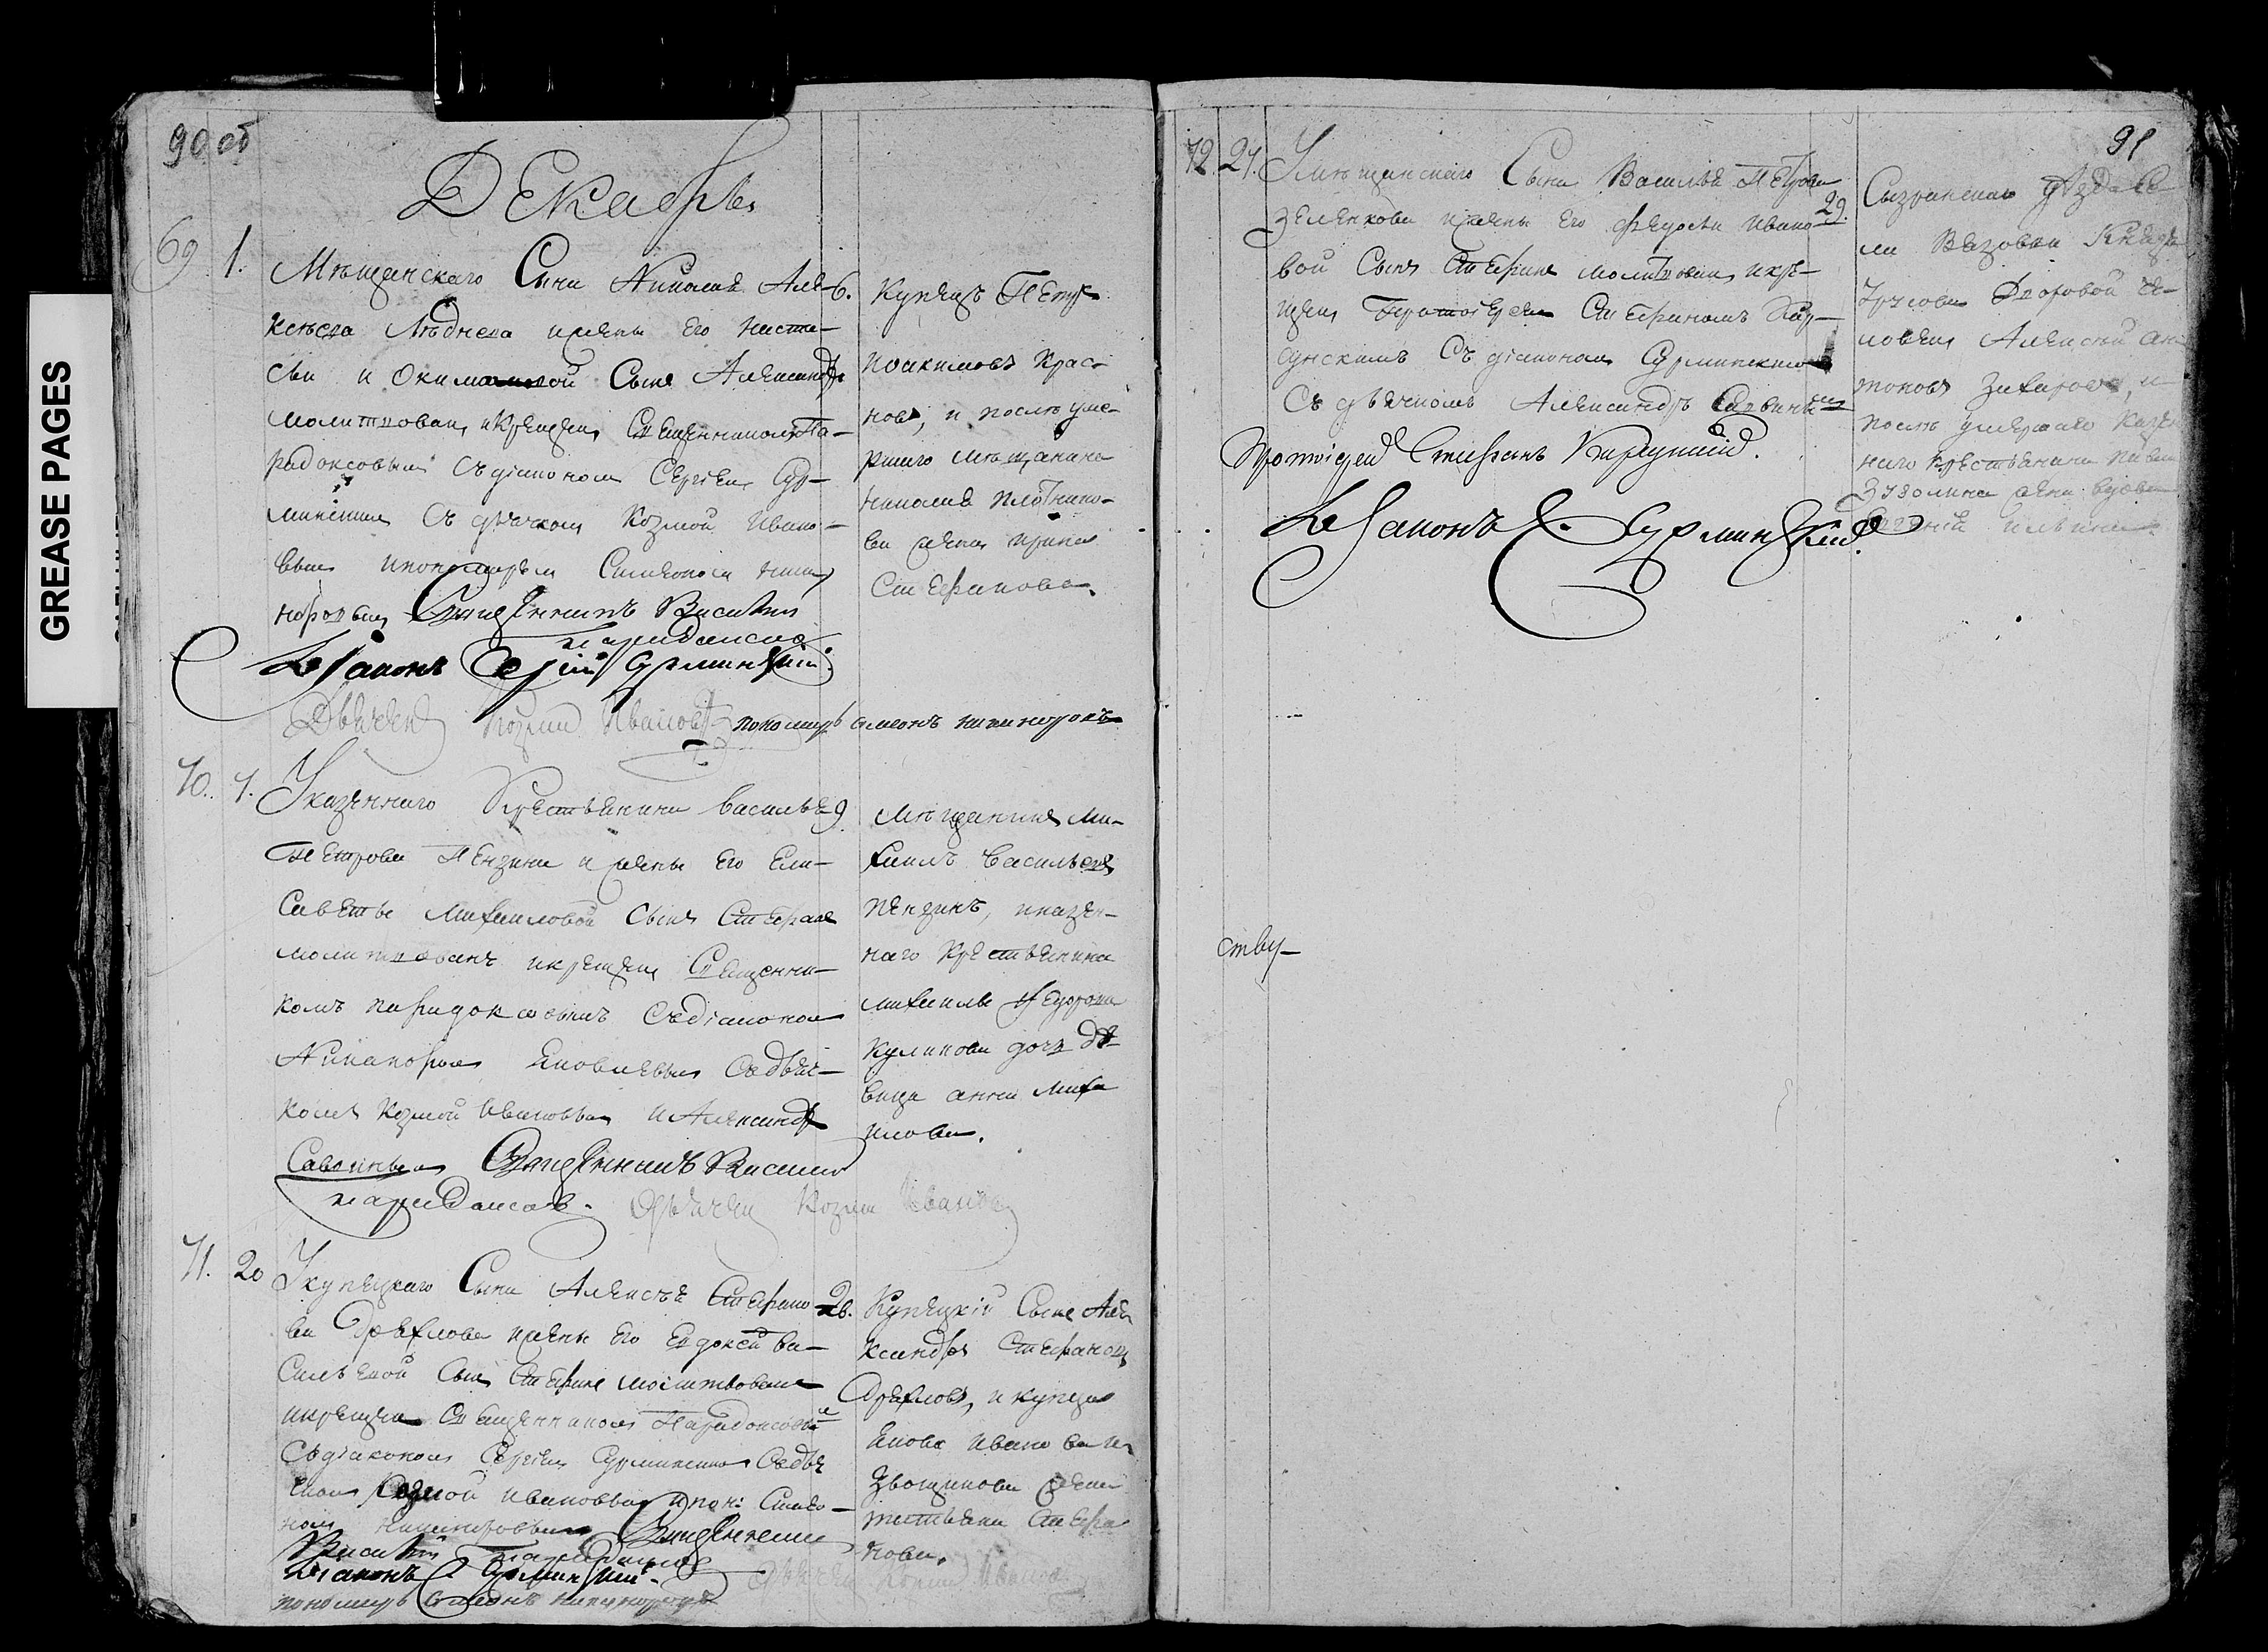 GREASE PAGES
90 об
Декабрь
69 1. Мѣщанскаго Сына Николая Але-
ксѣева Лѣднева и жены Его Наста-
сьи Сынъ Александръ
молитвован и крещен Священником Па-
радоксовым Съ діаконом Сергіем Сур-
минским Съ дьячком Козмой Ивано-
вым и пономарем Симеоном Ники-
норовым Священникъ Василій
Парадоксов
Діаконъ Сергій Сурминскій.
Дьячек Козма Иванов пономарь Симеонъ Никиноровъ
6. Купецъ Петръ
Иоакимовъ Крас-
нов, и после уме-
ршаго мѣщанина
Николая Плотнико-
ва жена Ирина
Стефанова.
70. 7. У казеннаго Крестьянина Василья
Петрова Пензина и жены Его Ели-
саветы Михаиловой Сынъ Стефанъ
молитвованъ и крещен Священни-
комъ Парадоксовымъ Съ діаконом
Никанором Яковлевым Съ дьяч-
комъ Козмой Ивановым и Александр
Савеинвым Священникъ Василій
Парадоксовъ. Дьячек Козма Иванов
9. Мѣщанинъ Ми-
хаилъ Васильевъ
Пензинъ, и казен-
наго Крестьянина
Михаила Федорова
Куликова дочь дѣ-
вица Анна Миха
илова.
71. 20 У купецкаго Сына Алексѣя Стефано
ва Дряхлова и жены Его Евдокеи Ва-
сильевой Сынъ Стефанъ молитвован
и крещен Священником Парадоксовым
Съ діаконом Сергіем Сурминским Съ дьяч
ком Козмой Ивановым и пон: Симео-
ном Никиноровым Священник
Василій Парадоксов
Діаконъ С Сурминскій.
пономарь Симеонъ Никиноровъ
Дьячек Козма Иванов
26. Купецкій Сынъ Але
ксандръ Стефановъ
Дряхловъ, и купца
Якова Иванова И
звощикова жена
Татьяна Стефа
нова.
91
72. 27. У мѣщанскаго Сына Василья Петрова
Зеленкова и жены Его Федосьи Ивано-
вой Сынъ Стефанъ молитвован и кре-
щен Протоіереем Стефаномъ Кар-
сунскимъ Съ діаконом Сурминским
Съ дьячкомъ Александр
Протоіерей Стефанъ Карсунскій.
Діаконъ С. Сурминскій.
29. Сызранскаго уѣзда Се-
ла Вязовки Князя
Трусова Дворовой че-
ловекъ Алексей Ан
тоновъ Захаров, и
после умершаго Казен
наго крестьянина Павла
жена вдова
Ильина.
ству-